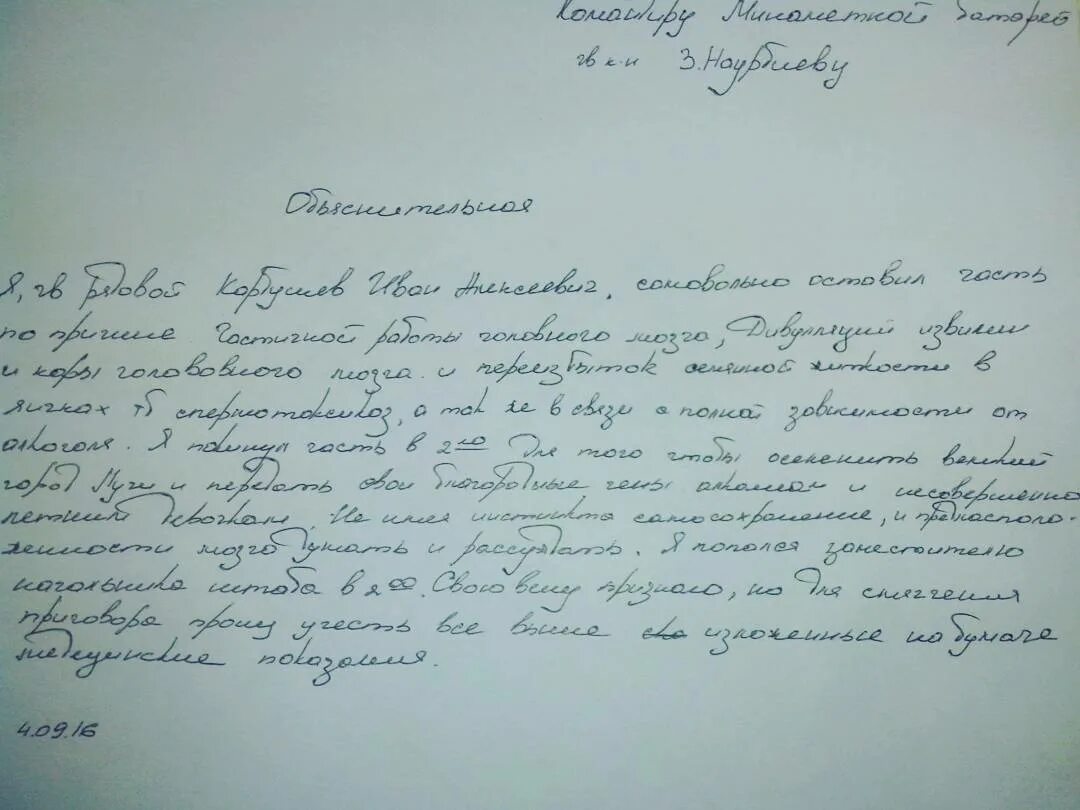 Командиру Минометной батареи
гв к-н З.Наурбиеву
Объяснительная
Я, гв рядовой Корбушев Иван Алексеевич, самовольно оставил часть
по причине Частичной работы головного мозга, Дивулляций извилин
и коры голововного мозга и переизбыток семянной житкости в
яичках тб спермотоксикоз, а так же в связи с полной зависимости от
алкоголя. Я покинул часть в 2 00 Для того чтобы осеменить великий
город Луги и передать свои благородные гены алкашам и несовершенно
летним девочкам. Не имея инстинкта самосохранение, и предрасполо-
женности мозга думать и рассуждать. Я попался заместителю
начальника штаба в 8 00. Свою вину признаю, но для смягчения
приговора прошу учесть все выше изложенные на бумаге
медицинские показания.
4.09.16